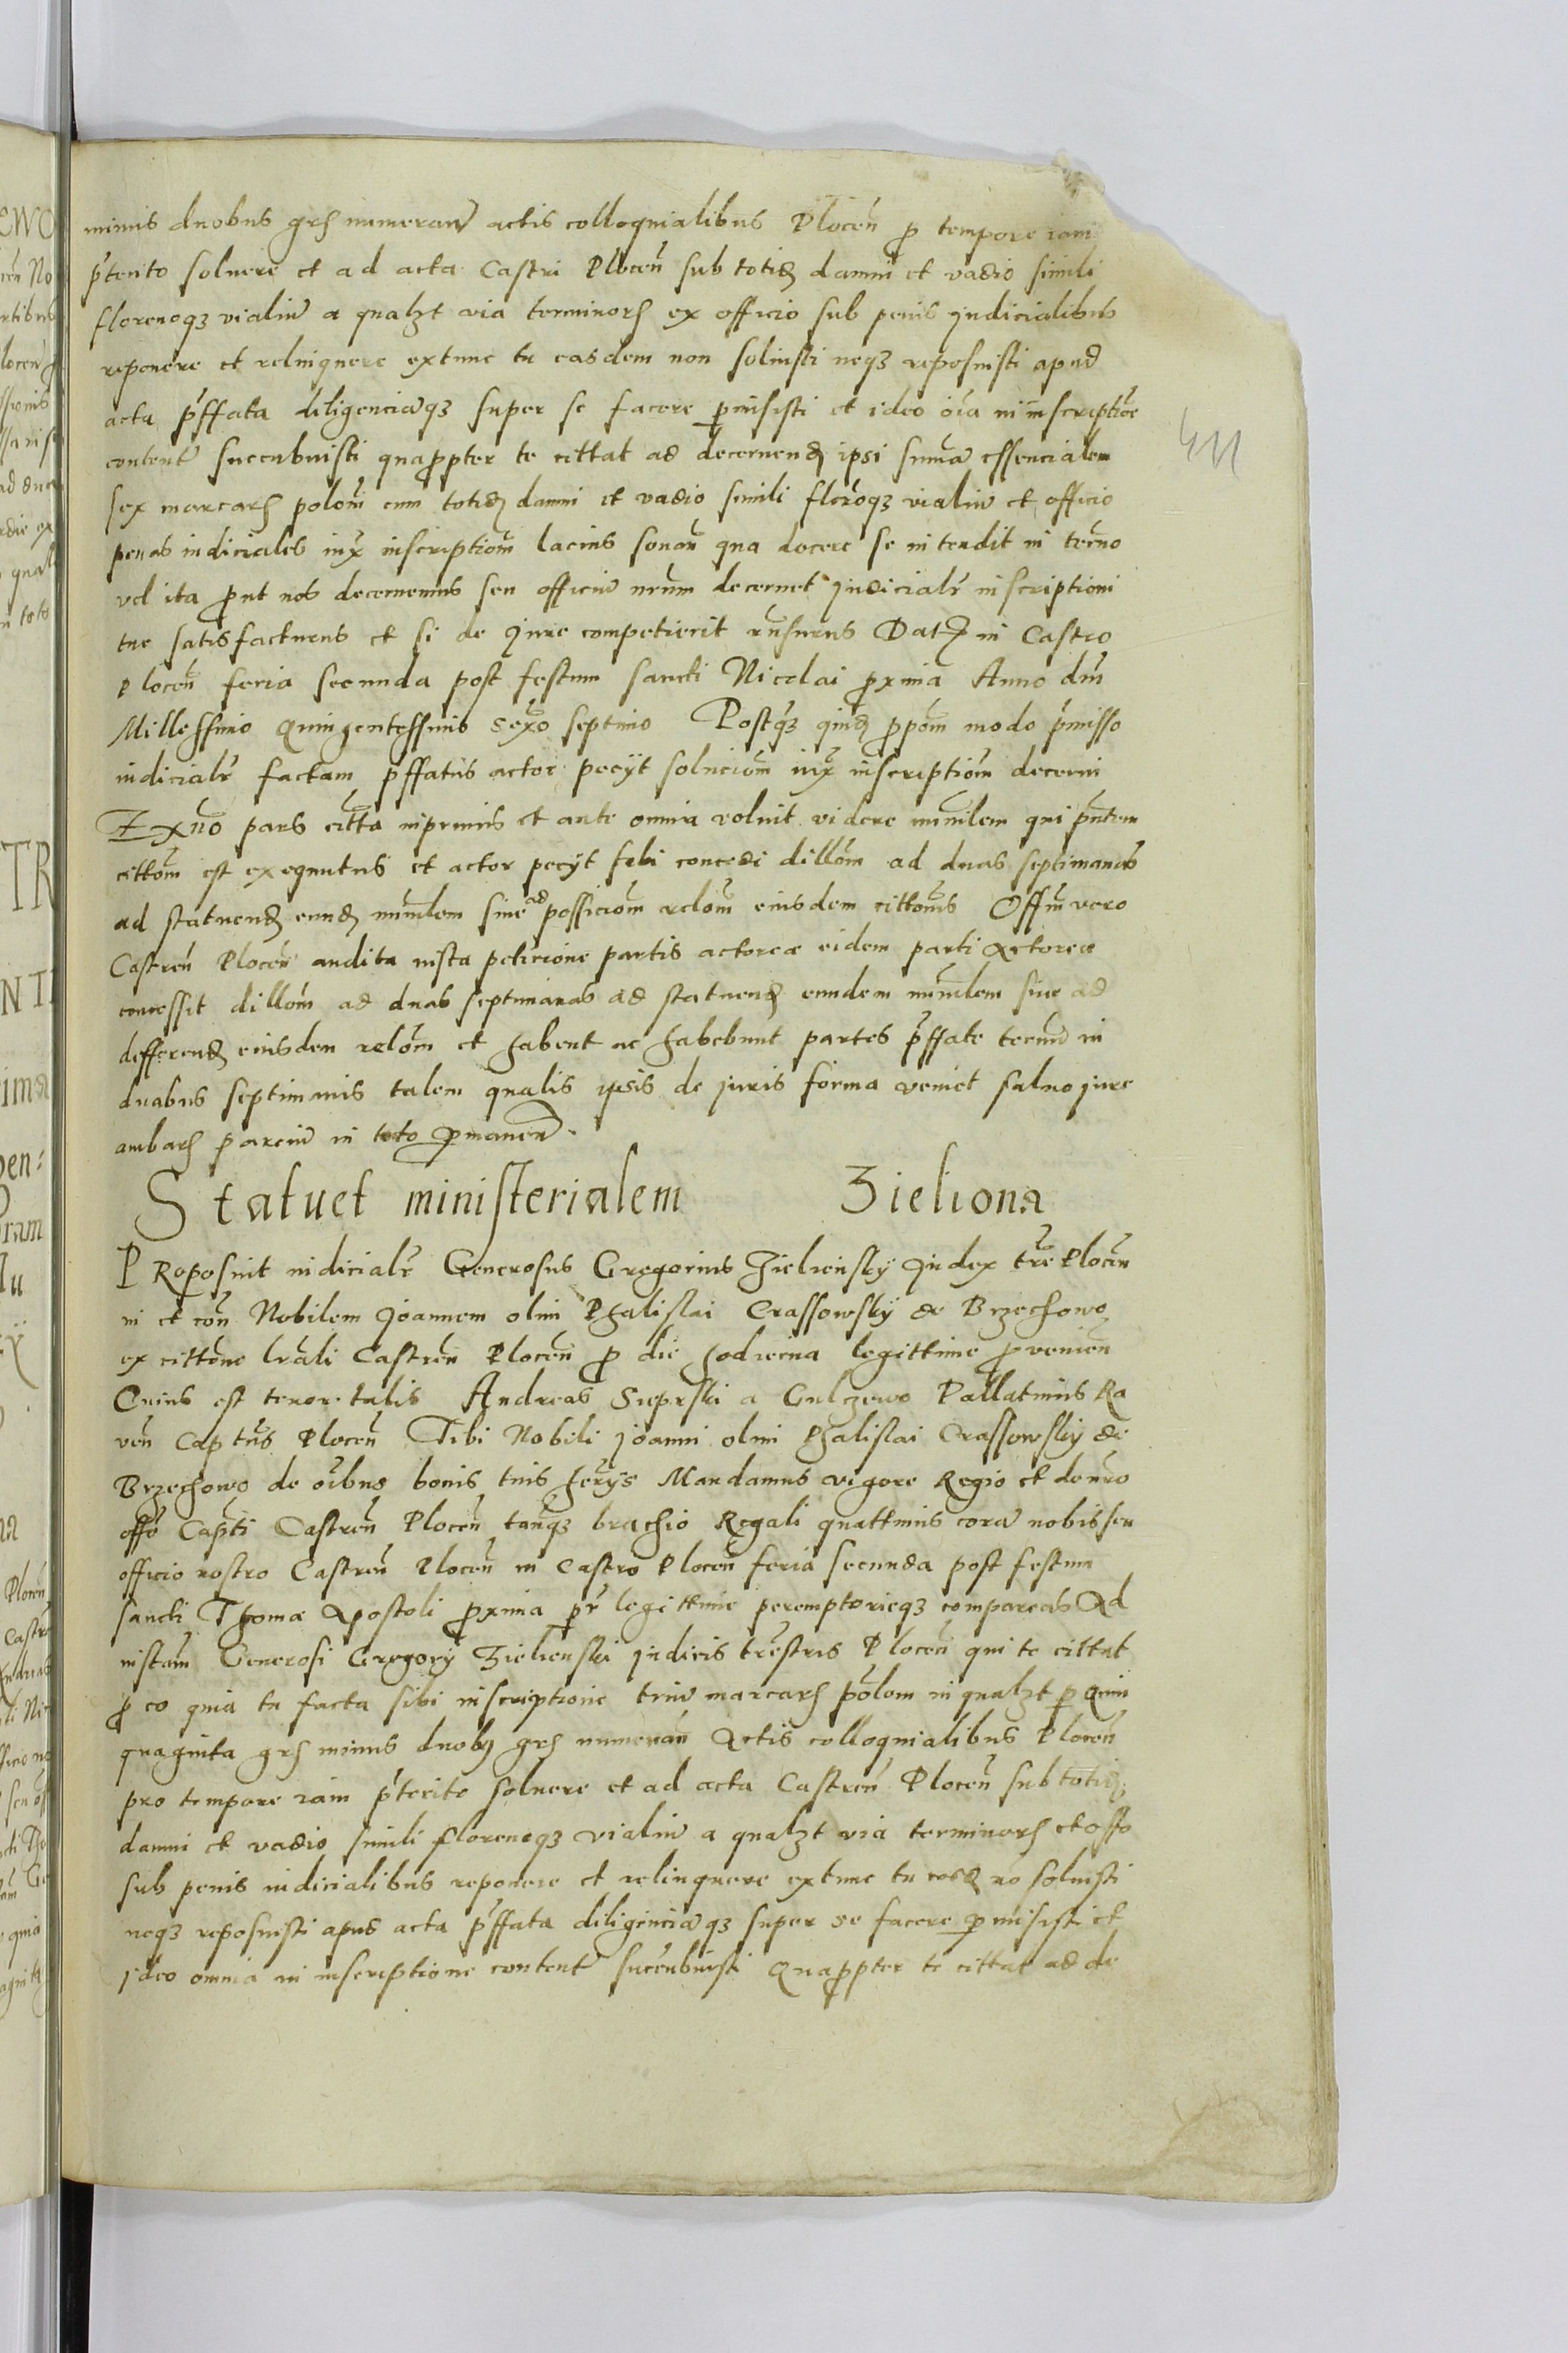 minus duobus grs̄ numeran̄ actis colloquialibus Plocen̄ p̱ tempore iam
p̄terito soluere et ad acta Castri Plocen̄ sub totiđ damni et vadio simili
florenoqȝ vialiū a qualꝫt via terminorꝭ ex officio sub penis judicialibus
reponere et relinquere extunc tu easdem non soluisti neqȝ reposuisti apud
acta p̄ffata diligenciāqȝ super se facere p̱misisti et ideo oīa in inscriptiōe
content̄ succubuisti quap̱pter te cittat ad decernenđ ipsi sum̄ā essencialem
sex marcarꝭ polonī cum totiđ damni et vadio simili flōroqȝ vialiū et officio
penas iudiciales iux̄ inscriptiōm lacius sonan̄ qua docere se intendit in terno
vel ita p̱ut nos decernemus seu officiū nr̄um decernet judicialr̄ inscriptioni
tue satisfacturus et si de jure competierit rn̄surus Datꝭ in Castro
Plocen̄ feria secunda post festum sancti Nicolai p̱xima Anno dnī
Millessimo Quingentessimo sex̄o septimo Postqȝ quiđ p̱pōm modo p̄misso
iudicialr̄ factam p̄ffatus actor pecÿt soluciōm iux̄ inscriptiōm decerni
Ex qn̄o pars citt̄a inprimis et ante omnia voluit videre minīlem qui pn̄tem
cittōm est exequutus et actor pecÿt sibi concedi dillōm ad duas septimanas
ad statuenđ eunđ minīlem siue ad possiciōm relōm eiusdem cittōnis Offm̄ vero
Castren̄ Plocen̄ audita iusta peticione partis actoreæ eidem parti Actoreæ
concessit dillōm ad duas septimanas ad statuenđ eundem minīlem siue ad
defferenđ eiusdem relōm et habent ac habebunt partes p̄ffate term̄ū in
duabus septimanis talem qualis ipsis de juris forma veniet saluo jure
ambarꝭ parciū in toto p̱manen̄.
Statuet ministerialem Zieliona
PRoposuit iudicialr̄ Generosus Gregorius Zieliensky Judex tr̄re Plocen̄
in et con̄ Nobilem Joannem olim Phalislai Crassowsky de Brzechowo
ex cittōne lrāli Castren̄ Plocen̄ p̱ die hodierna legittime p̱uenien̄
Cuius est tenor talis Andreas Sieprski a Gulczewo Pallatinus Ra
uen̄ Captn̄s Plocen̄ Tibi Nobili joanni olim Phalislai Crassowsky de
Brzechowo de oībus bonis tuis her̄ys Mandamus vigore Regio et de nr̄o
offō Captī Castren̄ Plocen̄ tanqȝ brachio Regali quattinus corā nobis seu
officio nostro Castren̄ Plocen̄ in Castro Plocen̄ feria secunda post festum
sancti Thomæ Apostoli p̱xima pr̄ legittime peremptorieqȝ compareas Ad
instam̄ Generosi Gregorÿ Zielienski judicis tr̄estris Plocen̄ qui te cittat
p̱ eo quia tu facta sibi inscriptione triū marcarꝭ pōlom in qualꝫt p̱ quin
quaginta grs̄ minus duobȝ grs̄ numeran̄ Actis colloquialibus Plocen̄
pro tempore iam p̄terito soluere et ad acta Castren̄ Plocen̄ sub totiđ
damni et vadio simili florenoqȝ vialiū a qualꝫt via terminorꝭ et offo
sub penis iudicialibus reponere et relinquere extunc tu eosđ nō soluisti
neqȝ reposuisti apud acta p̄ffata diligenciāqȝ super se facere p̱misisti et
jdeo omnia in inscriptione content̄ succubuisti Quap̱pter te cittat ad de